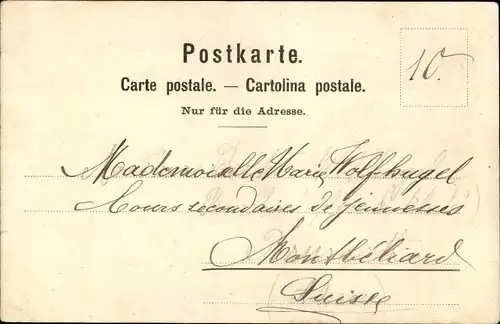 Postkarte.
10.
Carte postale. — Cartolina postale.
Nur für die Adresse.
Mademoiselle Marie Wolfhugel
Cours secondaires de jeunesses
Montbéliard
(Suisse)